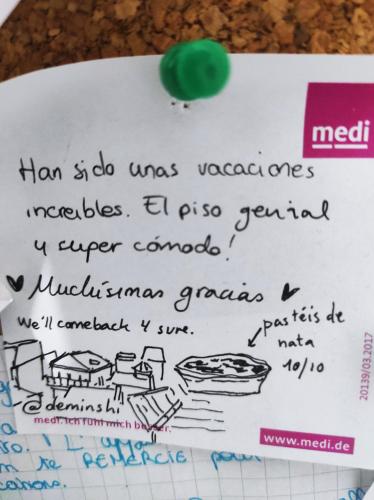 medi
Han sido unas vacaciones
increibles. El piso genial
y super cómodo!
Muchísimas gracias
We'll comeback 4 sure.
pastéis de
nata
10/10
@deminshi
medi. ich fühl mich besser.
www.medi.de
20139/03.2017
te REMERCIE pour